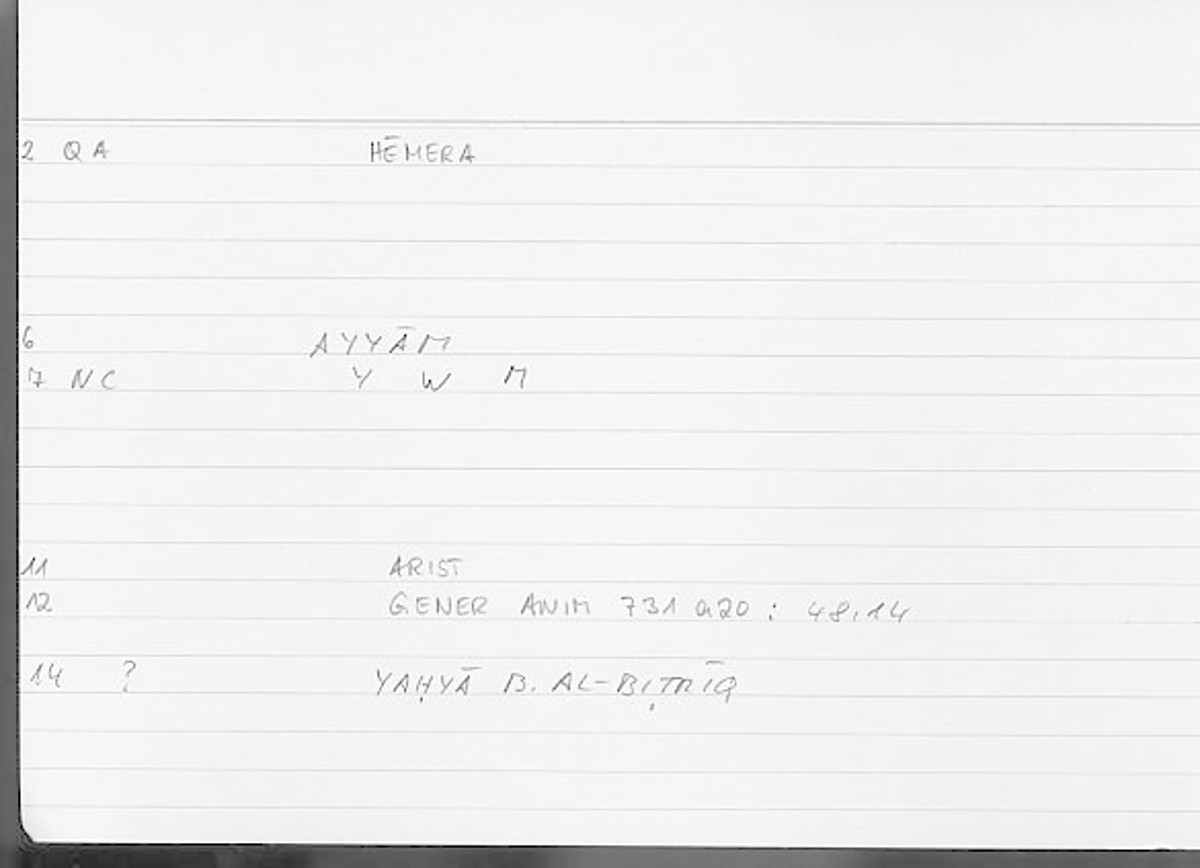 2 QA HĒMERA
6 AYYĀM
7 NC Y W M
11 ARIST
12 GENER ANIM 731 a20 : 48,14
14 ? YAḤYĀ B. AL-BIṬRĪQ